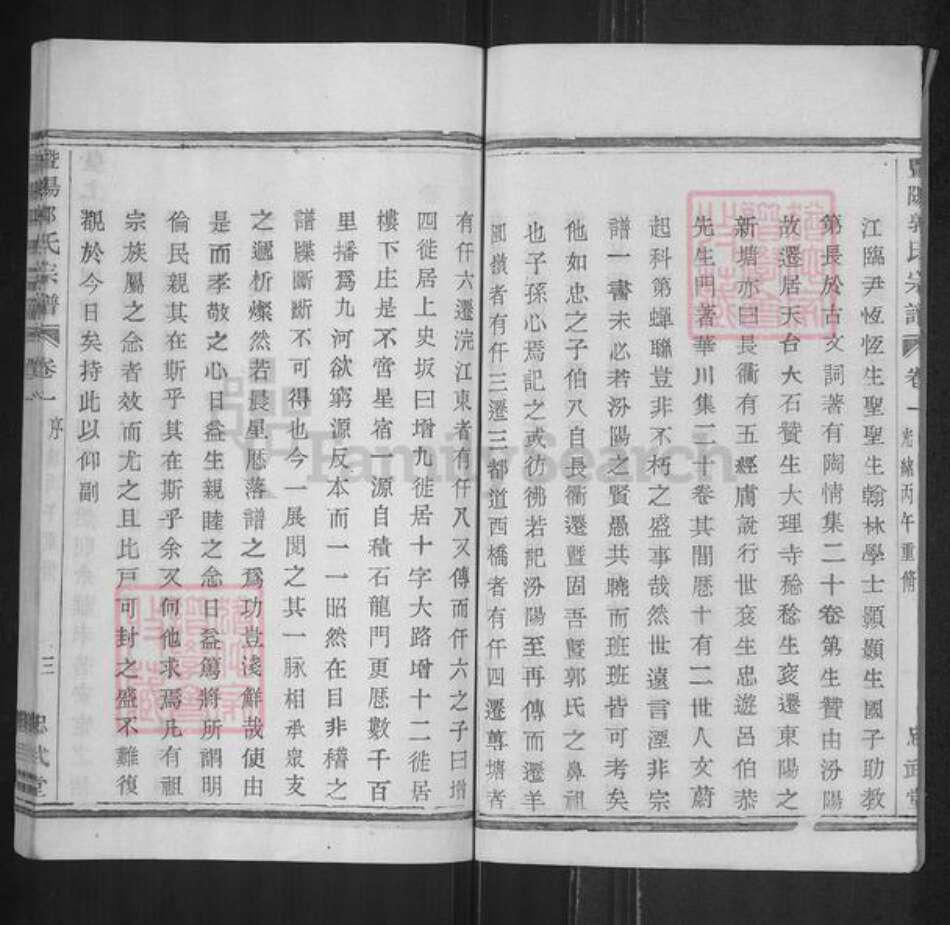 暨陽郭氏宗譜 卷一 光緒丙午重脩 忠武堂
江臨尹恆恆生聖聖生翰林學士顥顥生國子助教
第長於古文詞著有陶情集二十卷第生贊由汾陽
故遷居天台大石贊生大理寺稔稔生袞遷東陽之
新塘亦曰長衢有五經膚說行世袞生忠遊呂伯恭
先生門著華川集二十卷其間歷十有二世人文蔚
起科第蟬聯豈非不朽之盛事哉然世遠言湮非宗
譜一書未必若汾陽之賢愚共曉而班班皆可考矣
他如忠之子伯八自長衢遷暨固吾暨郭氏之鼻祖
也子孫心焉記之或彷彿若記汾陽至再傳而遷羊
圓嶺者有仟三遷三都道西橋者有仟四遷蓴塘者
有仟六遷浣江東者有仟八又傳而仟六之子曰增
四徙居上史坂曰增九徙居十字大路增十二徙居
樓下庄是不啻星宿一源自積石龍門更歷數千百
里播爲九河欲窮源反本而一一昭然在目非稽之
譜牒斷斷不可得也今一展閱之其一脉相承衆支
之遞析燦然若晨星厯落譜之爲功豈淺鮮哉使由
是而孝敬之心日益生親睦之念日益篤將所謂明
倫民親其在斯乎其在斯乎余又何他求焉凡有祖
宗族屬之念者效而尤之且比戸可封之盛不難復
觀於今日矣持此以仰副
暨陽郭氏宗譜 卷一 序 三 忠武堂
FamilySearch